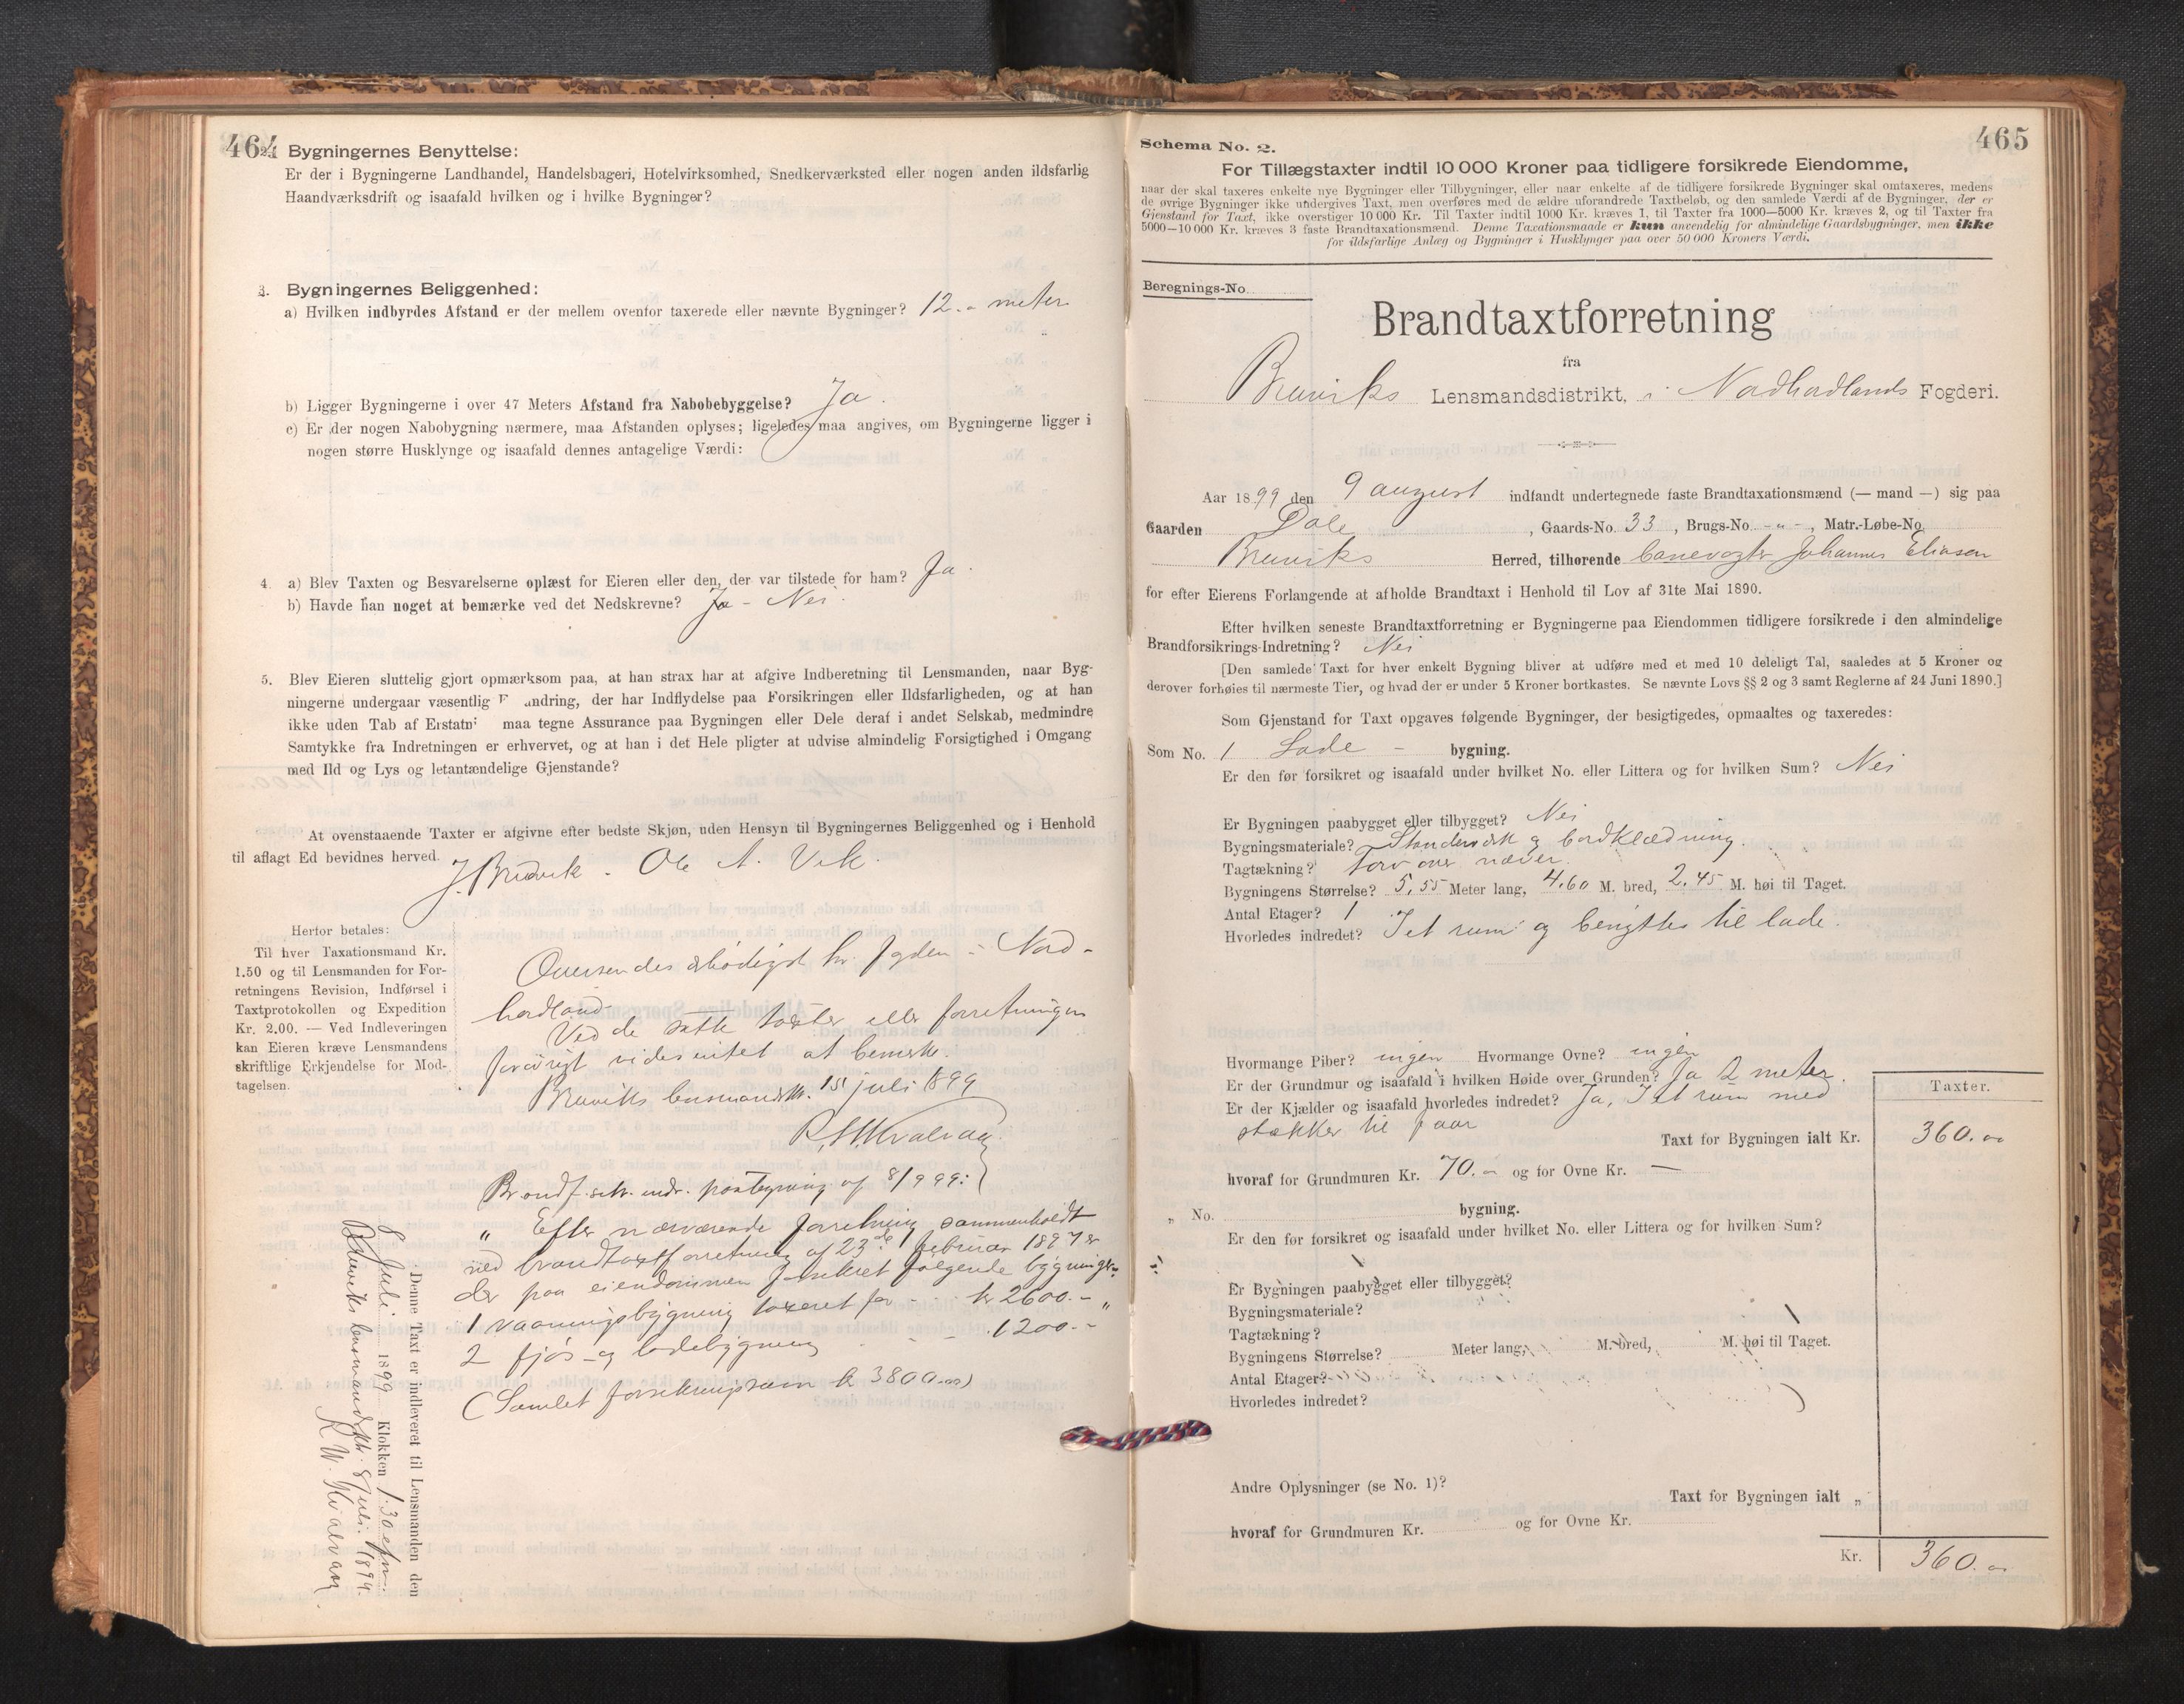 464
2. Bygningernes Benyttelse:
Er der i Bygningerne Landhandel, Handelsbageri, Hotelvirksomhed, Snedkerværksted eller nogen anden ildsfarlig
Haandværksdrift og isaafald hvilken og i hvilke Bygninger?
3. Bygningernes Beliggenhed:
a) Hvilken indbyrdes Afstand er der mellem ovenfor taxerede eller nævnte Bygninger? 12.- meter
b) Ligger Bygningerne i over 47 Meters Afstand fra Nabobebyggelse? Ja.
c) Er der nogen Nabobygning nærmere, maa Afstanden oplyses; ligeledes maa angives, om Bygningerne ligger i
nogen større Husklynge og isaafald dennes antagelige Værdi:
4. a) Blev Taxten og Besvarelserne oplæst for Eieren eller den, der var tilstede for ham? Ja.
b) Havde han noget at bemærke ved det Nedskrevne? Ja - Nei.
5. Blev Eieren sluttelig gjort opmærksom paa, at han strax har at afgive Indberetning til Lensmanden, naar Byg-
ningerne undergaar væsentlig F andring, der har Indflydelse paa Forsikringen eller Ildsfarligheden, og at han
ikke uden Tab af Erstatni maa tegne Assurance paa Bygningen eller Dele deraf i andet Selskab, medmindre
Samtykke fra Indretningen er erhvervet, og at han i det Hele pligter at udvise almindelig Forsigtighed i Omgang
med Ild og Lys og letantændelige Gjenstande?
At ovenstaaende Taxter er afgivne efter bedste Skjøn, uden Hensyn til Bygningernes Beliggenhed og i Henhold
til aflagt Ed bevidnes herved.
J. Bruvik. Ole A. Vik.
Herfor betales:
Til hver Taxationsmand Kr.
1.50 og til Lensmanden for For-
retningens Revision, Indførsel i
Taxtprotokollen og Expedition
Kr. 2.00. — Ved Indleveringen
kan Eieren kræve Lensmandens
skriftlige Erkjendelse for Mod-
tagelsen.
Oversendes ærbødigst hr. fogden i Nord-
hordland
Ved de satte taxter eller forretningen
forøvrigt vides intet at bemerke.
Bruviks lensmandsk. 15 juli 1899
Brandf. indr. paategning af 8/9 99:
" Efter nærværende forretning sammenholdt
med brandtaxtforretning af 23de februar 1897 er
der paa eiendommen forsikret følgende bygninger:
1 vaaningsbygning taxeret for - kr 2600.-
2 fjøs- og ladebygning - - 1200.- "
(Samlet forsikringssum kr 3800.00)
Denne Taxt er indleveret til Lensmanden den
8 Juli 1899 Klokken 1.30 efm.
Bruviks lensmandsk. 8 juli 1899.
465
Schema No. 2.
For Tillægstaxter indtil 10 000 Kroner paa tidligere forsikrede Eiendomme,
naar der skal taxeres enkelte nye Bygninger eller Tilbygninger, eller naar enkelte af de tidligere forsikrede Bygninger skal omtaxeres, medens
de øvrige Bygninger ikke undergives Taxt, men overføres med de ældre uforandrede Taxtbeløb, og den samlede Værdi af de Bygninger, der er
Gjenstand for Taxt, ikke overstiger 10 000 Kr. Til Taxter indtil 1000 Kr. kræves 1, til Taxter fra 1000—5000 Kr. kræves 2, og til Taxter fra
5000—10 000 Kr. kræves 3 faste Brandtaxationsmænd. Denne Taxationsmaade er kun anvendelig for almindelige Gaardsbygninger, men ikke
for ildsfarlige Anlæg og Bygninger i Husklynger paa over 50 000 Kroners Værdi.
Beregnings-No.
Brandtaxtforretning
fra
Bruviks Lensmandsdistrikt, i Nordhordlands Fogderi.
Aar 1899 den 9 august indfandt undertegnede faste Brandtaxationsmænd (— mand —) sig paa
Gaarden Dale, Gaards-No. 33, Brugs-No. -"-, Matr.-Løbe-No.
Bruviks Herred, tilhørende banevogter Johannes Eliasen
for efter Eierens Forlangende at afholde Brandtaxt i Henhold til Lov af 31te Mai 1890.
Efter hvilken seneste Brandtaxtforretning er Bygningerne paa Eiendommen tidligere forsikrede i den almindelige
Brandforsikrings-Indretning? Nei
[Den samlede Taxt for hver enkelt Bygning bliver at udføre med et med 10 deleligt Tal, saaledes at 5 Kroner og
derover forhøies til nærmeste Tier, og hvad der er under 5 Kroner bortkastes. Se nævnte Lovs §§ 2 og 3 samt Reglerne af 24 Juni 1890.]
Som Gjenstand for Taxt opgaves følgende Bygninger, der besigtigedes, opmaaltes og taxeredes:
Som No. 1 Lade - bygning.
Er den før forsikret og isaafald under hvilket No. eller Littera og for hvilken Sum? Nei
Er Bygningen paabygget eller tilbygget? Nei
Bygningsmateriale? Standerverk og bordklædning.
Tagtækning? torv over næver.
Bygningens Størrelse? 5,55 Meter lang, 4.60 M. bred, 2.45 M. høi til Taget.
Antal Etager? 1
Hvorledes indredet? I et rum og benyttes til lade.
Hvormange Piber? ingen Hvormange Ovne? ingen
Er der Grundmur og isaafald i hvilken Høide over Grunden? Ja 2 meter.
Er der Kjælder og isaafald hvorledes indredet? Ja, I et rum med
stækker til faar
Taxter.
Taxt for Bygningen ialt Kr. 360.00
hvoraf for Grundmuren Kr. 70.- og for Ovne Kr. —
" No. bygning.
Er den før forsikret og isaafald under hvilket No. eller Littera og for hvilken Sum?
Er Bygningen paabygget eller tilbygget?
Bygningsmateriale?
Tagtækning?
Bygningens Størrelse? Meter lang, M. bred, M. høi til Taget.
Antal Etager?
Hvorledes indredet?
Andre Oplysninger (se No. 1)?
Taxt for Bygningen ialt "
hvoraf for Grundmuren Kr. og for Ovne Kr.
Kr. 360.00